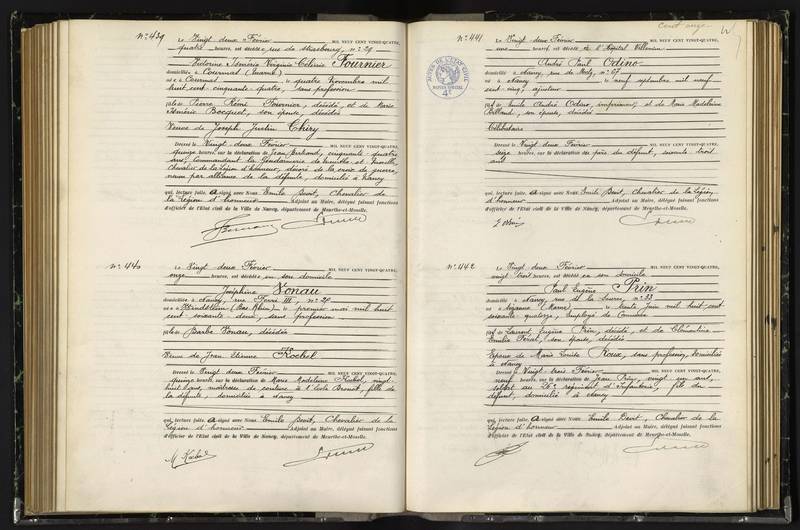 N°: 439
Le Vingt deux Février MIL NEUF CENT VINGT-QUATRE,
quatre heures, est décédée rue de Strasbourg, n°: 29
Fournier
domiciliée à Cournot (Marne)
née à Cournot le quatre Novembre mil
huit cent cinquante quatre, sans profession
fille de Pierre Rémi Fournier, décédé, et de Marie
Bocquet, son épouse, décédée
Veuve de Joseph Justin Chéry
Dressé le Vingt deux Février MIL NEUF CENT VINGT-QUATRE,
quinze heures, sur la déclaration de Jean cinquante quatre
ans, Commandant la Gendarmerie de Meurthe et Moselle,
Chevalier de la Légion d'honneur, décoré de la croix de guerre,
neveu par alliance de la défunte, domicilié à Nancy
qui, lecture faite, a signé avec Nous Emile Chevalier de
la Légion d'honneur Adjoint au Maire, délégué faisant fonctions
d'officier de l'État civil de la Ville de Nancy, département de Meurthe-et-Moselle.
N°: 440
Le Vingt deux Février MIL NEUF CENT VINGT-QUATRE,
onze heures, est décédée en son domicile
Joséphine Vonau
domiciliée à Nancy, rue n°: 29
née à Windstein (Bas Rhin) le premier mai mil huit
cent soixante deux, sans profession
fille de Barbe Vonau, décédée
Veuve de Jean Etienne Kochel
Dressé le Vingt deux Février MIL NEUF CENT VINGT-QUATRE,
quinze heures, sur la déclaration de Marie Madeleine Kochel, vingt
huit ans, maîtresse de couture à l'école fille de
la défunte, domiciliée à Nancy
qui, lecture faite, a signé avec Nous Emile Chevalier de la
Légion d'honneur Adjoint au Maire, délégué faisant fonctions
d'officier de l'État civil de la Ville de Nancy, département de Meurthe-et-Moselle.
M Kochel
cent onze
N°: 441
Le Vingt deux Février MIL NEUF CENT VINGT-QUATRE,
une heure, est décédé à l'Hôpital Villemin
André Paul Odino
domicilié à Nancy, rue de Metz, n°: 67
né à Nancy le neuf septembre mil neuf
cent cinq, ajusteur
fils de Emile André Odino, imprimeur, et de Marie Madeleine
son épouse, décédée
Célibataire
Dressé le Vingt deux Février MIL NEUF CENT VINGT-QUATRE,
seize heures, sur la déclaration du père du défunt, soixante trois
ans
qui, lecture faite, a signé avec Nous Emile Chevalier de la Légion
d'honneur Adjoint au Maire, délégué faisant fonctions
d'officier de l'État civil de la Ville de Nancy, département de Meurthe-et-Moselle.
N°: 442
Le Vingt deux Février MIL NEUF CENT VINGT-QUATRE,
vingt trois heures, est décédé en son domicile
Paul Eugène Prin
domicilié à Nancy, rue de la n°: 33
né à (Marne) le trente Juin mil huit cent
soixante quatorze, employé de Commerce
fils de Laurent Eugène Prin, décédé et de Clémentine
Emilie son épouse, décédée
Epoux de Marie Emilie Roux, sans profession, domiciliée
à Nancy
Dressé le Vingt trois Février MIL NEUF CENT VINGT-QUATRE,
neuf heures, sur la déclaration de Jean Prin, vingt un ans,
soldat au 26e régiment d'Infanterie, fils du
défunt, domicilié à Nancy
qui, lecture faite, a signé avec Nous Emile Chevalier de la
Légion d'honneur Adjoint au Maire, délégué faisant fonctions
d'officier de l'État civil de la Ville de Nancy, département de Meurthe-et-Moselle.